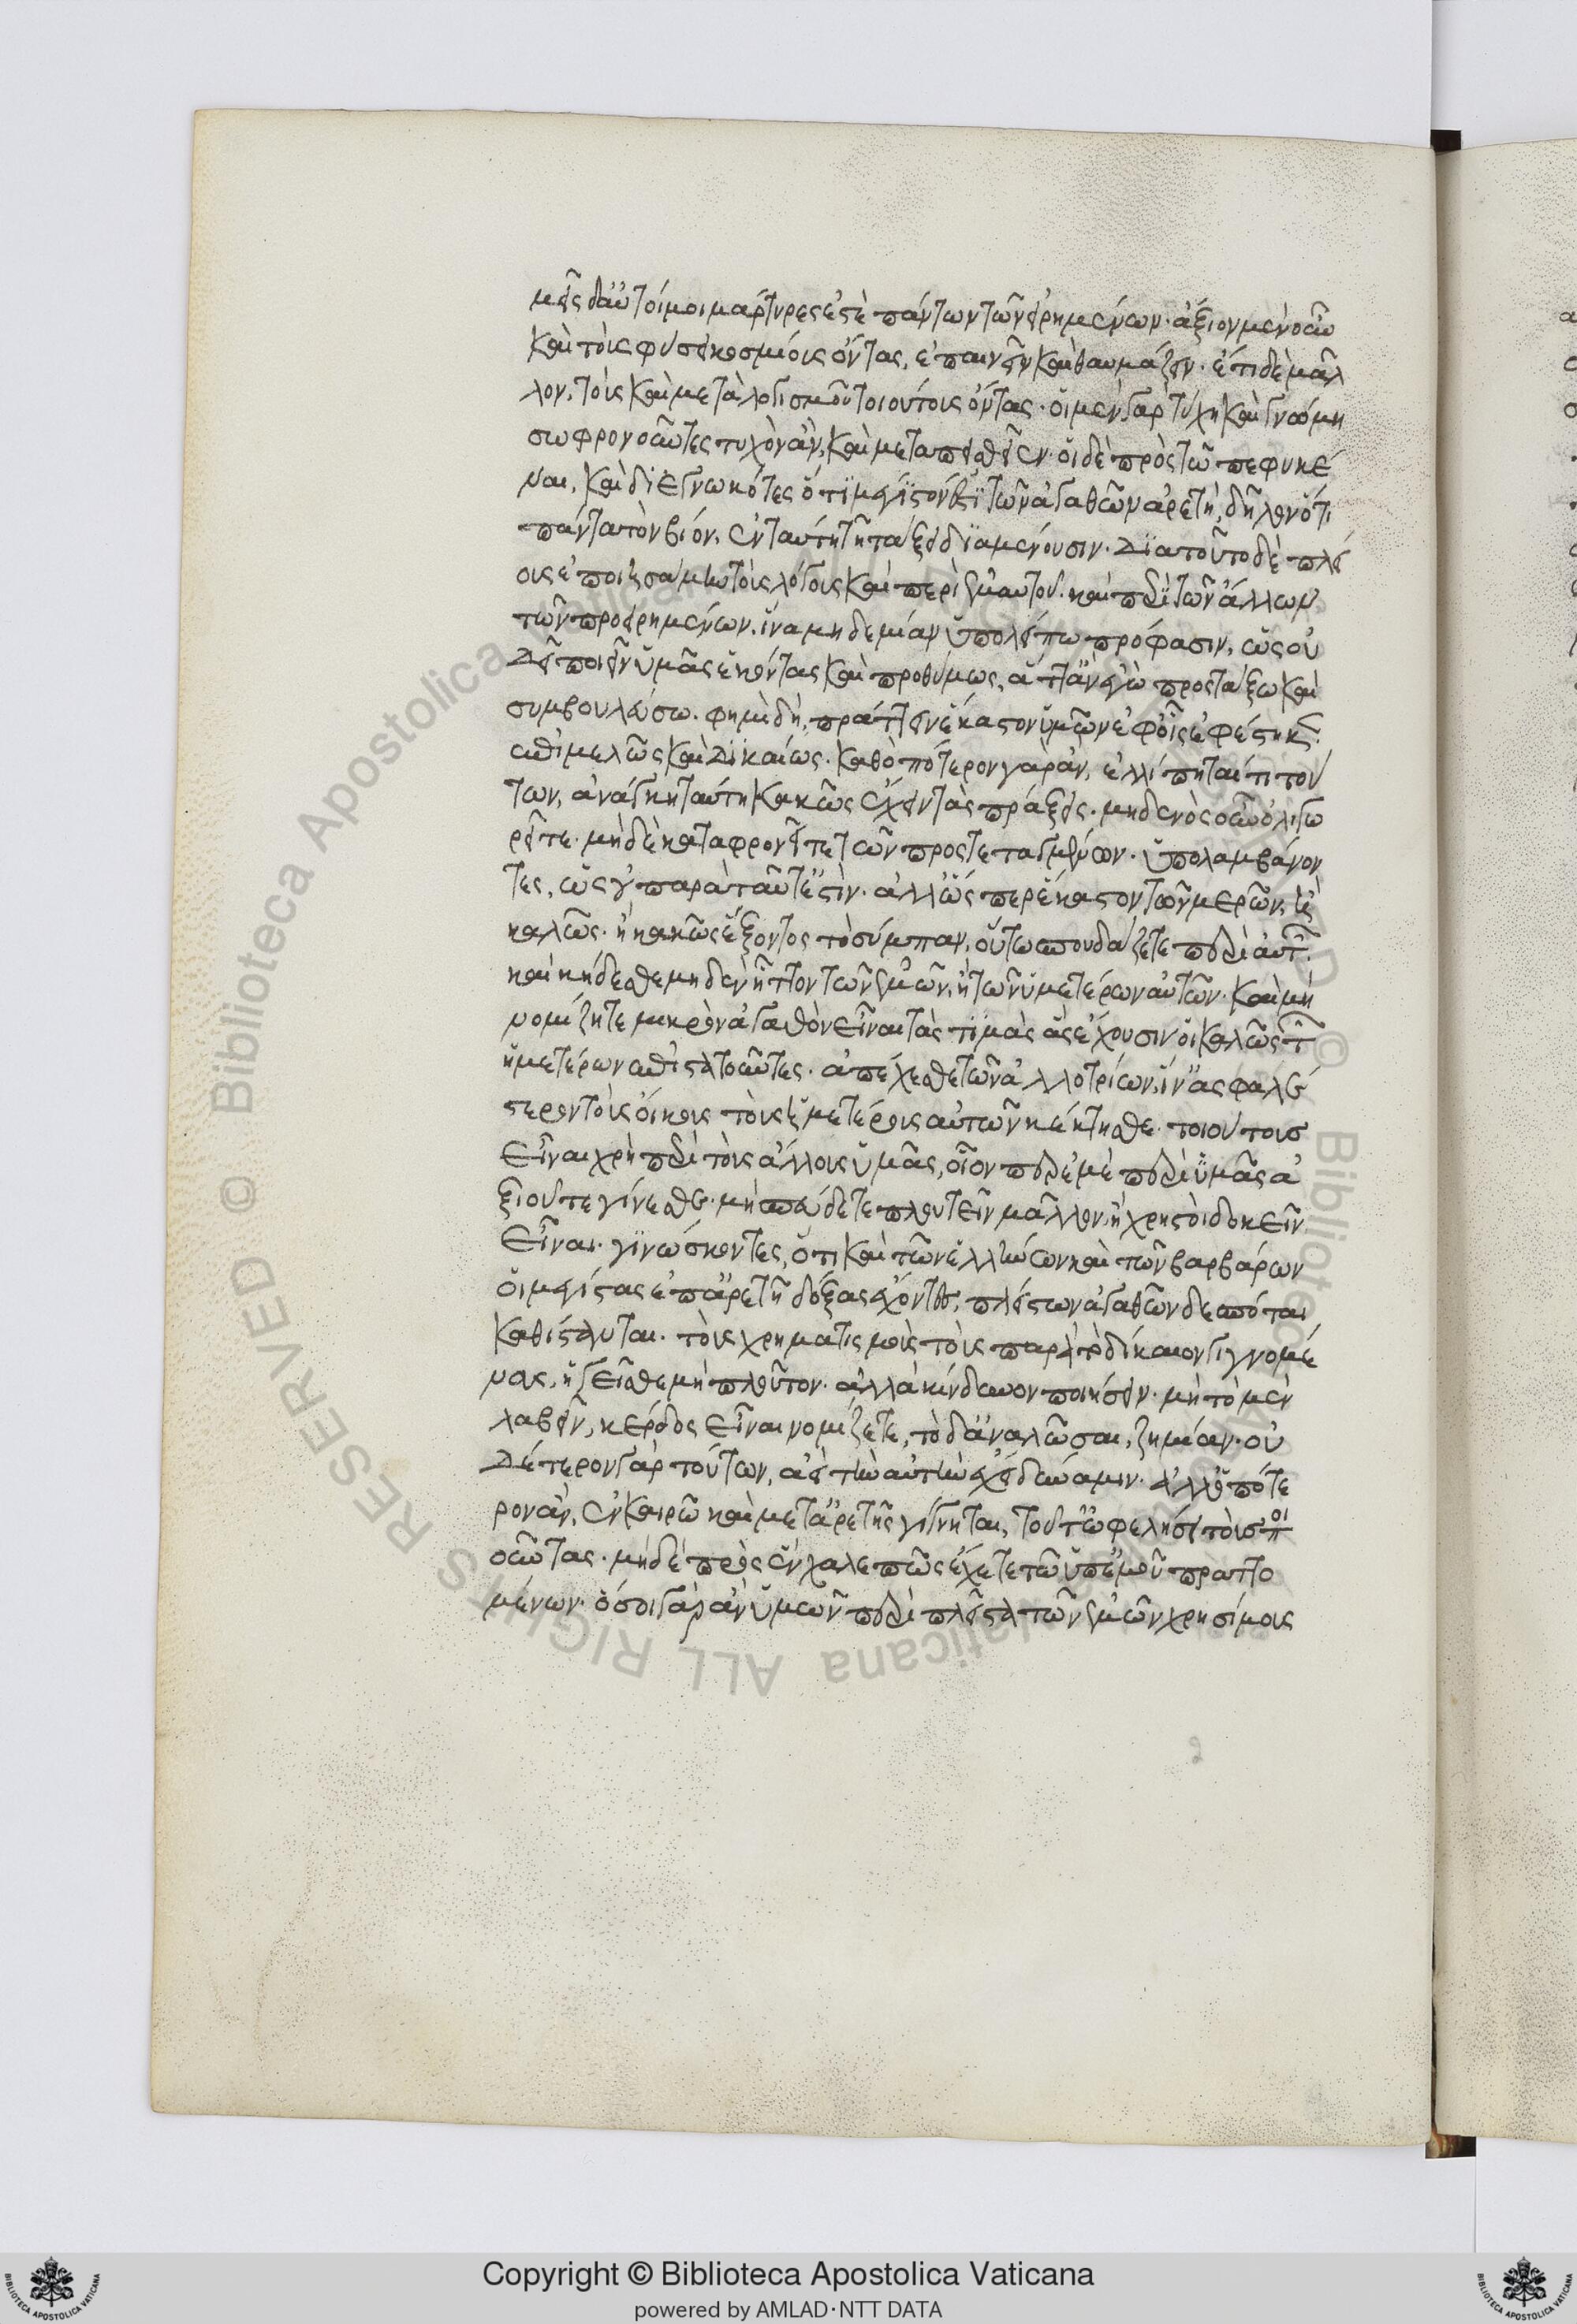 μεῖς δ' αὐτοί μοι μάρτυρές ἐστε πάντων τῶν εἰρημένων. ἄξιον μὲν οὖν
καὶ τοὺς φύσει κοσμίους ὄντας, ἐπαινεῖν καὶ θαυμάζειν. ἔτι δὲ μᾶλ
λον, τοὺς καὶ μετὰ λογισμοῦ τοιούτους ὄντας. οἱ μὲν γὰρ τύχῃ καὶ γνώμῃ
σωφρονοῦντες τυχὸν ἂν, καὶ μεταπεισθεῖεν. οἱ δὲ πρὸς τῷ πεφυκέ
ναι, καὶ διεγνωκότες ὅτι μέγιστόν ἐστι τῶν ἀγαθῶν ἀρετὴ, δῆλον ὅτι
πάντα τὸν βίον, ἐν ταύτῃ τῇ τάξει διαμένουσιν. Διὰ τοῦτο δὲ πλεί
ους ἐποιησάμην τοὺς λόγους καὶ περὶ ἐμαυτοῦ. καὶ περὶ τῶν ἄλλων
τῶν προειρημένων. ἵνα μηδεμίαν ὑπολείπω πρόφασιν, ὡς οὐ
Δεῖ ποιεῖν ὑμᾶς ἑκόντας καὶ προθύμως, ἅττ' ἂν ἐγὼ προστάξω καὶ
συμβουλεύσω. φημὶ δὴ, πράττειν ἕκαστον ὑμῶν ἐφ' οἷς ἐφέστηκε
ἐπιμελῶς καὶ Δικαίως. καθ' ὁπότερον γὰρ ἂν, ἐλλίπηται τι τού
των, ἀνάγκη ταύτῃ κακῶς ἔχειν τὰς πράξεις. μηδενὸς οὖν ὀλιγω
ρεῖτε. μὴ δὲ καταφρονεῖτε τῶν προστεταγμένων. ὑπολαμβάνον
τες, ὡς οὐ παρὰ τοῦτ' ἐστίν. ἀλλ' ὥς περ ἕκαστον τῶν μερῶν, ἢ
καλῶς. ἢ κακῶς ἕξοντος τὸ σύμπαν, οὕτω σπουδάζετε περὶ αὐτῶν.
καὶ κήδεσθε μηδὲν ἧττον τῶν ἐμῶν, ἢ τῶν ὑμετέρων αὐτῶν. καὶ μὴ
νομίζητε μικρὸν ἀγαθὸν εἶναι τὰς τιμὰς ἃς ἔχουσιν οἱ καλῶς τῶν
ἡμετέρων ἐπιστατοῦντες. ἀπέχεσθε τῶν ἀλλοτρίων, ἵν' ἀσφαλέ
στερον τοὺς οἴκους τοὺς ὑμετέρους αὐτῶν κέκτησθε. τοιούτους
Εἶναι χρὴ περὶ τοὺς ἄλλους ὑμᾶς, οἷον περ ἐμὲ περὶ ὑμᾶς ἀ
ξιοῦτε γίνεσθαι. μὴ σπεύδετε πλουτεῖν μᾶλλον, ἢ χρηστοὶ δοκεῖν
Εἶναι. γινώσκοντες, ὅτι καὶ τῶν ἑλλήνων καὶ τῶν βαρβάρων
οἱ μεγίστας ἐπ' ἀρετῇ δόξας ἔχοντες, πλείστων ἀγαθῶν δεσπόται
καθίστανται. τοὺς χρηματισμοὺς τοὺς παρὰ τὸ δίκαιον γιγνομέ
νους, ἡγεῖσθε μὴ πλοῦτον. ἀλλὰ κίνδυνον ποιήσειν. μὴ τὸ μὲν
λαβεῖν, κέρδος εἶναι νομίζετε, τὸ δ' ἀναλῶσαι, ζημίαν. οὐ
Δέτερον γὰρ τούτων, ἀεὶ τὴν αὐτὴν ἔχει δύναμιν. ἀλλ' ὁπότε
ρον ἂν, ἐν καιρῷ καὶ μετ' ἀρετῆς γίγνηται, τοῦτ' ὠφελήσει τοὺς ποι
οῦντας. μὴ δὲ πρὸς ἓν χαλεπῶς ἔχετε τῶν ὑπ' ἐμοῦ πραττο
μένων. ὅσοι γὰρ ἂν ὑμῶν περὶ πλεῖστα τῶν ἐμῶν χρησίμους
Copyright © Biblioteca Apostolica Vaticana
powered by AMLAD·NTT DATA